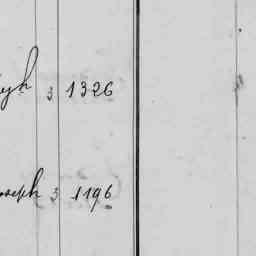 3 1326
oseph 3 1196